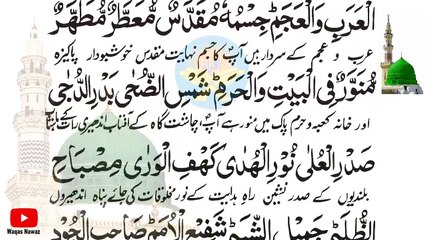 الْعَرَبِ وَالْعَجَمِ جِسْمُهٗ مُقَدَّسٌ مُّعَطَّرٌ مُّطَهَّرٌ
عرب و عجم کے سردار ہیں آپ کا جسم نہایت مقدس خوشبودار پاکیزہ
مُّنَوَّرٌ فِی الْبَیْتِ وَالْحَرَمِ شَمْسِ الضُّحٰی بَدْرِ الدُّجٰی
اور خانہ کعبہ و حرم پاک میں منور ہے آپ چاشت گاہ کے آفتاب اندھیری رات کے
صَدْرِ الْعُلٰی نُوْرِ الْهُدٰی كَهْفِ الْوَرٰی مِصْبَاحِ
بلندیوں کے صدر نشین راہ ہدایت کے نور مخلوقات کی جائے پناہ اندھیروں
الظُّلَمِ جَمِیْلِ الشِّیَمِ شَفِیْعِ الْاُمَمِ صَاحِبِ الْجُوْدِ
Waqas Nawaz